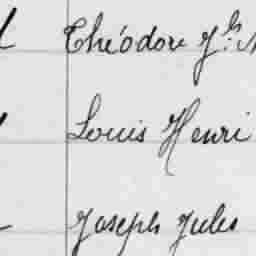 Théodore Jh
Louis Henri
Joseph Jules